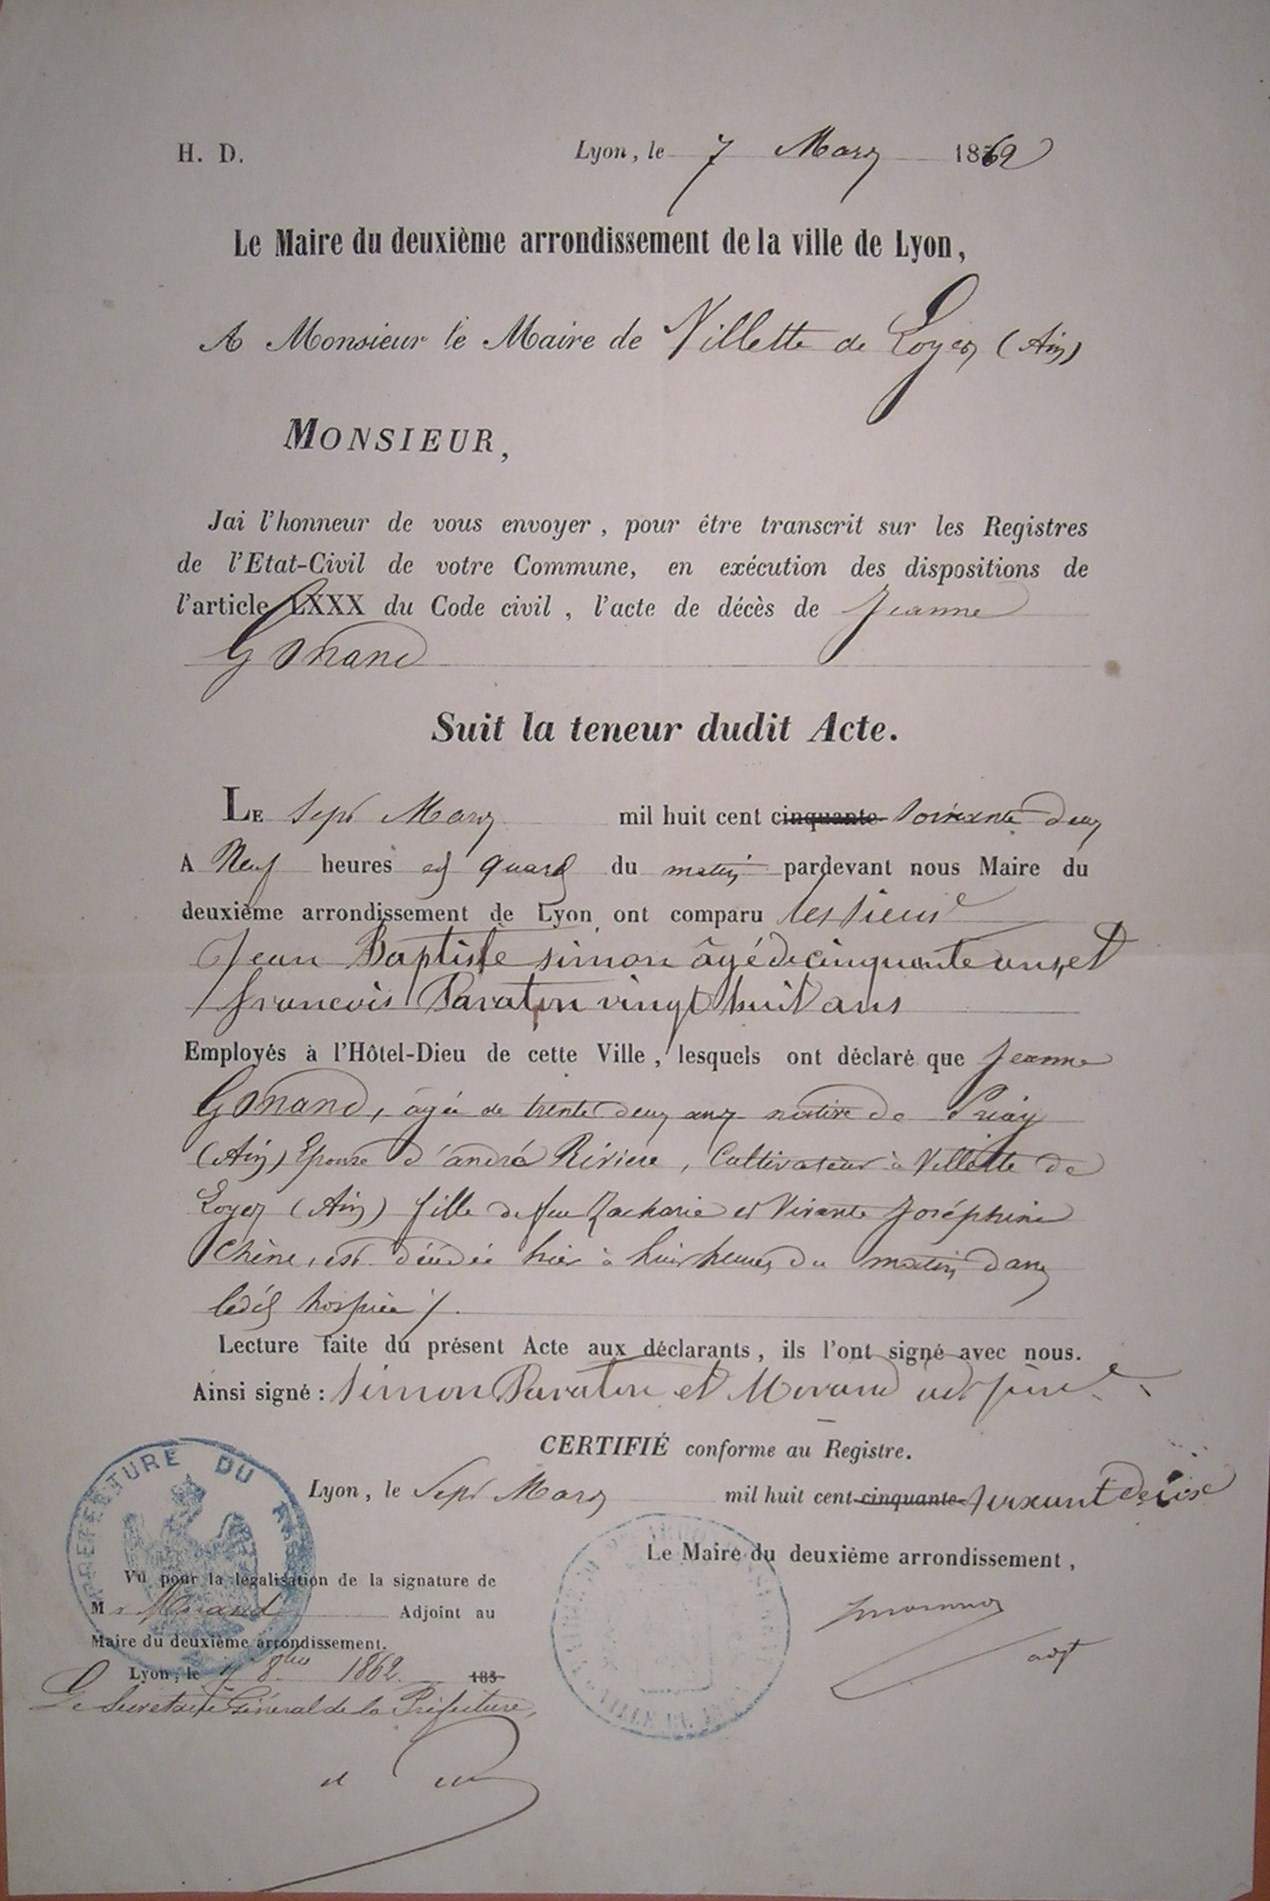 H. D. Lyon, le 7 Mars 1862
Le Maire du deuxième arrondissement de la ville de Lyon,
A Monsieur le Maire de Villette de Loyes (Ain)
MONSIEUR,
Jai l'honneur de vous envoyer, pour être transcrit sur les Registres
de l'Etat-Civil de votre Commune, en exécution des dispositions de
l'article LXXX du Code civil, l'acte de décès de Jeanne
Gonand
Suit la teneur dudit Acte.
LE sept Mars mil huit cent cinquante soixante deux
A Neuf heures et quard du matin pardevant nous Maire du
deuxième arrondissement de Lyon ont comparu les sieurs
Jean Baptiste simon âgé de cinquante ans, et
francois Paraton vingt huit ans
Employés à l'Hôtel-Dieu de cette Ville, lesquels ont déclaré que Jeanne
Gonand, âgée de trente deux ans native de Priay
(Ain) Epouse d'andré Riviere, Cultivateur à Villette de
Loyes (Ain) fille de feu Zacharie et Vivante Joséphine
Chêne, est décédée hier à huit heures du matin dans
ledit hospice /.
Lecture faite du présent Acte aux déclarants, ils l'ont signé avec nous.
Ainsi signé : Simon Paraton et Morand adt
CERTIFIÉ conforme au Registre.
Lyon, le Sept Mars mil huit cent cinquante soixante deux
Le Maire du deuxième arrondissement,
PREFECTURE DU
Vu pour la légalisation de la signature de
M r Morand Adjoint au
Maire du deuxième arrondissement.
Lyon, le 7 8bre 1862 185
Le Secretaire Général de la Préfecture,
adt
VILLE DE LYON